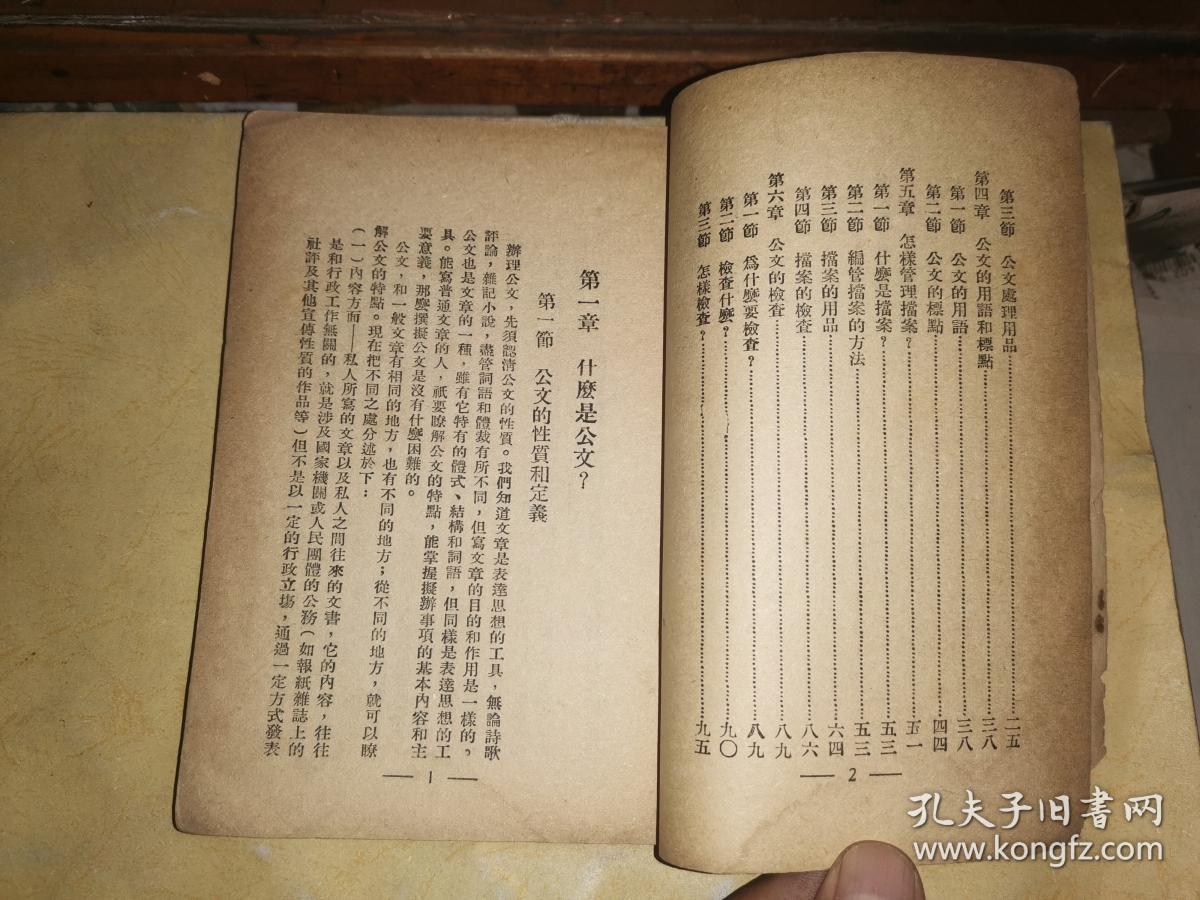 第三節　公文處理用品……二五
第四章　公文的用語和標點……三八
第一節　公文的用語……三八
第二節　公文的標點……四四
第五章　怎樣管理擋案？……五一
第一節　什麼是擋案？……五三
第二節　編管擋案的方法……五三
第三節　擋案的用品……六四
第四節　擋案的檢查……八六
第六章　公文的檢查……八九
第一節　爲什麼要檢查？……八九
第二節　檢查什麼？……九〇
第三節　怎樣檢查？……九五
— 2 —
第一章　什麽是公文？
第一節　公文的性質和定義
辦理公文，先須認清公文的性質。我們知道文章是表達思想的工具，無論詩歌
評論，雜記小說，盡管詞語和體裁有所不同，但寫文章的目的和作用是一樣的。
公文也是文章的一種，雖有它特有的體式、結構和詞語，但同樣是表達思想的工
具。能寫普通文章的人，祇要瞭解公文的特點，能掌握擬辦事項的基本內容和主
要意義，那麽撰擬公文是沒有什麽困難的。
公文，和一般文章有相同的地方，也有不同的地方；從不同的地方，就可以瞭
解公文的特點。現在把不同之處分述於下：
（一）內容方面——私人所寫的文章以及私人之間往來的文書，它的內容，往往
是和行政工作無關的，就是涉及國家機關或人民團體的公務（如報紙雜誌上的
社評及其他宣傳性質的作品等）但不是以一定的行政立場，通過一定方式發表
— 1 —
孔夫子旧书网
www.kongfz.com